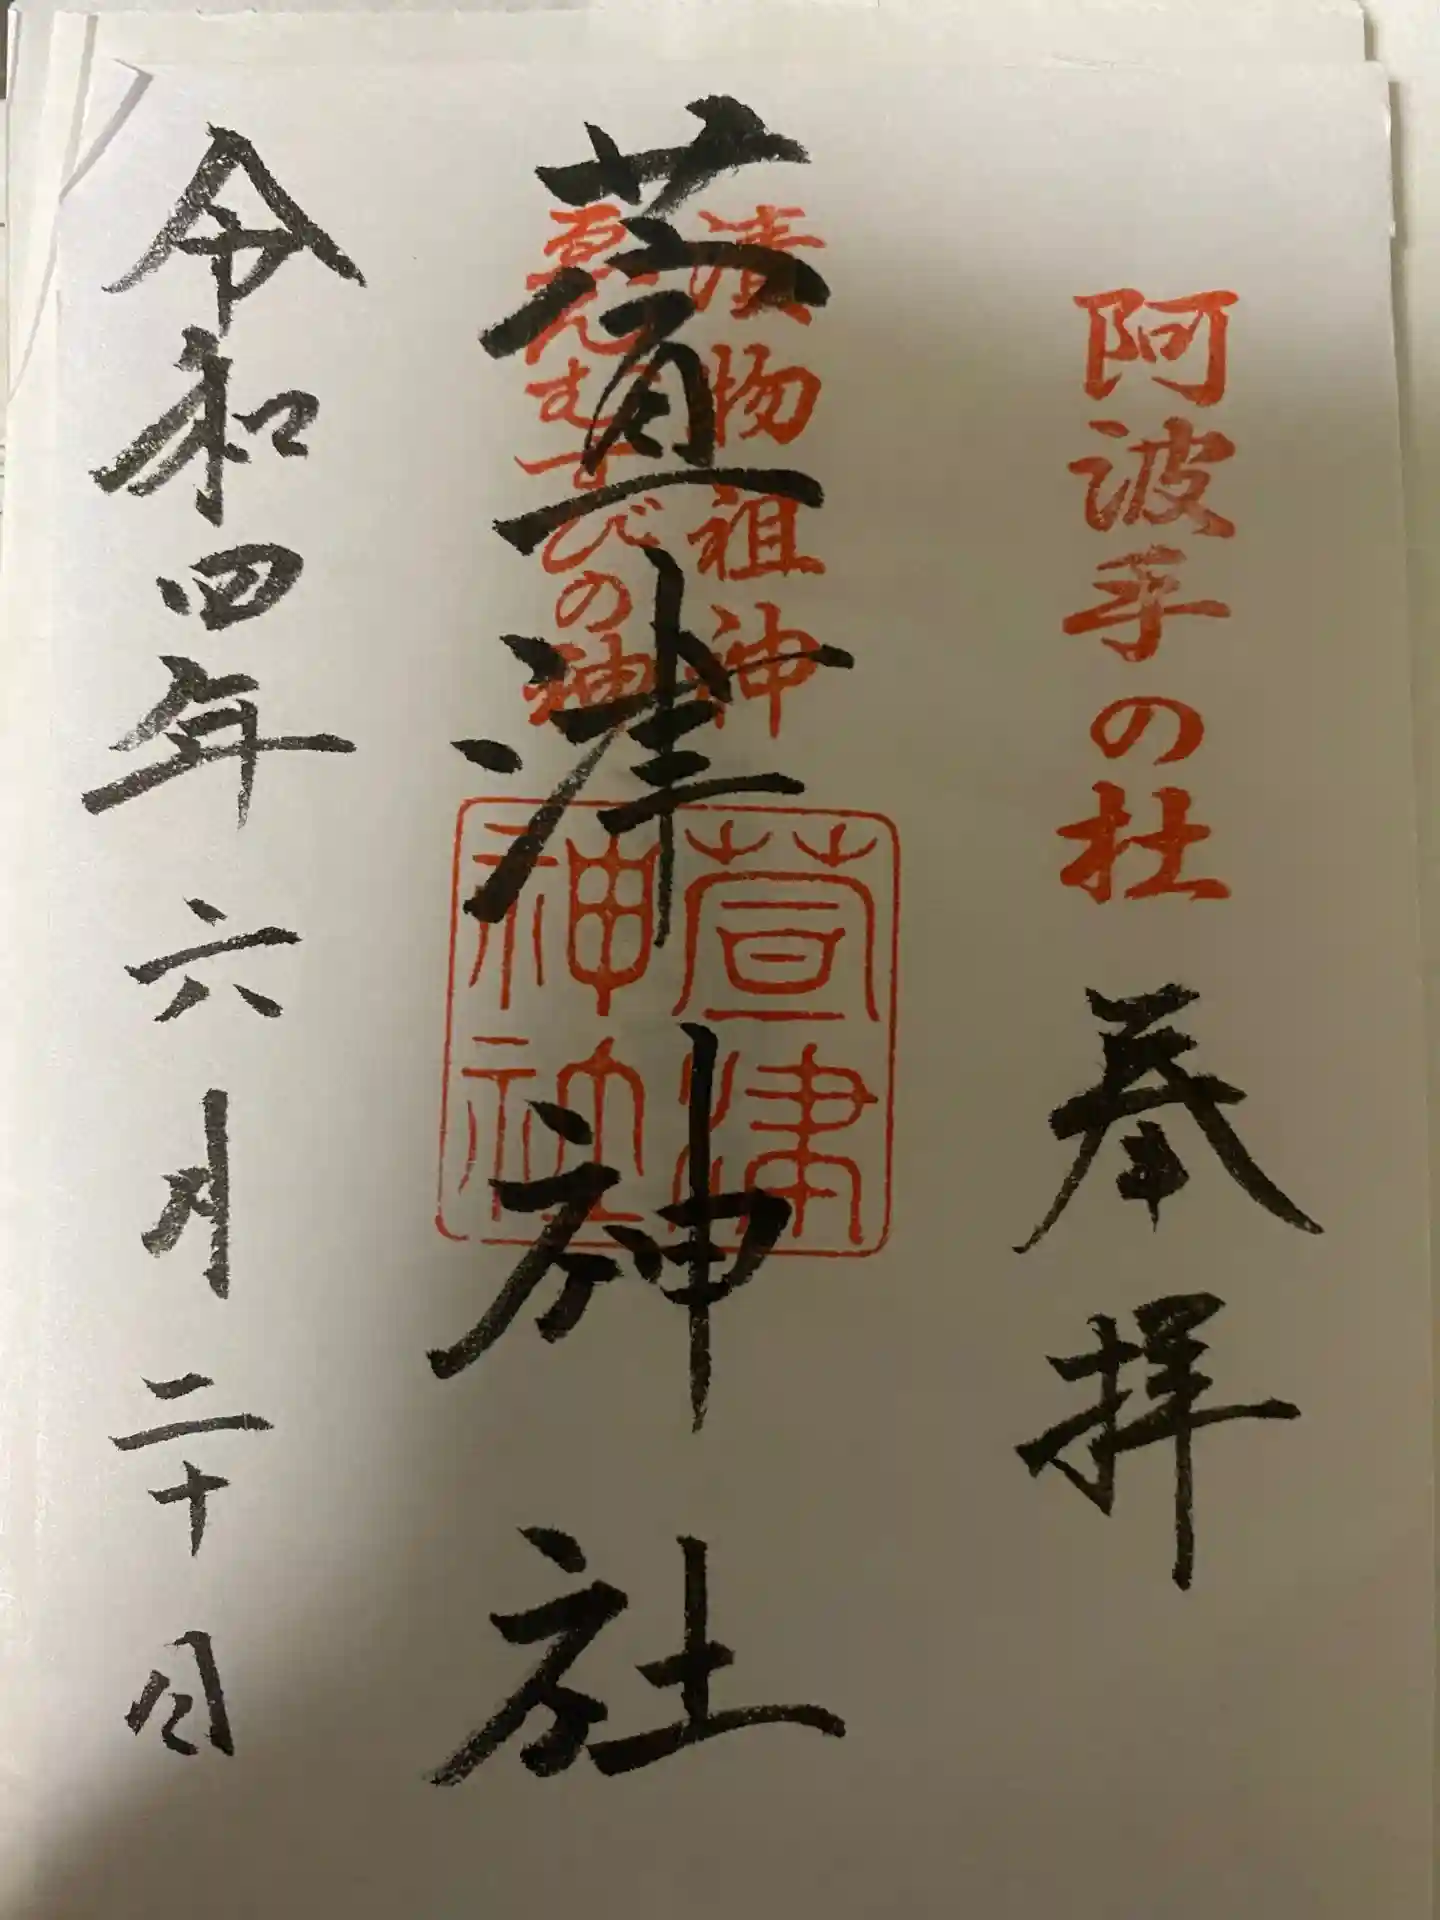 阿波手の杜
奉拝
漬物祖神
ゑんむすびの神
萱津神社
萱津
神社
令和四年六月二十日